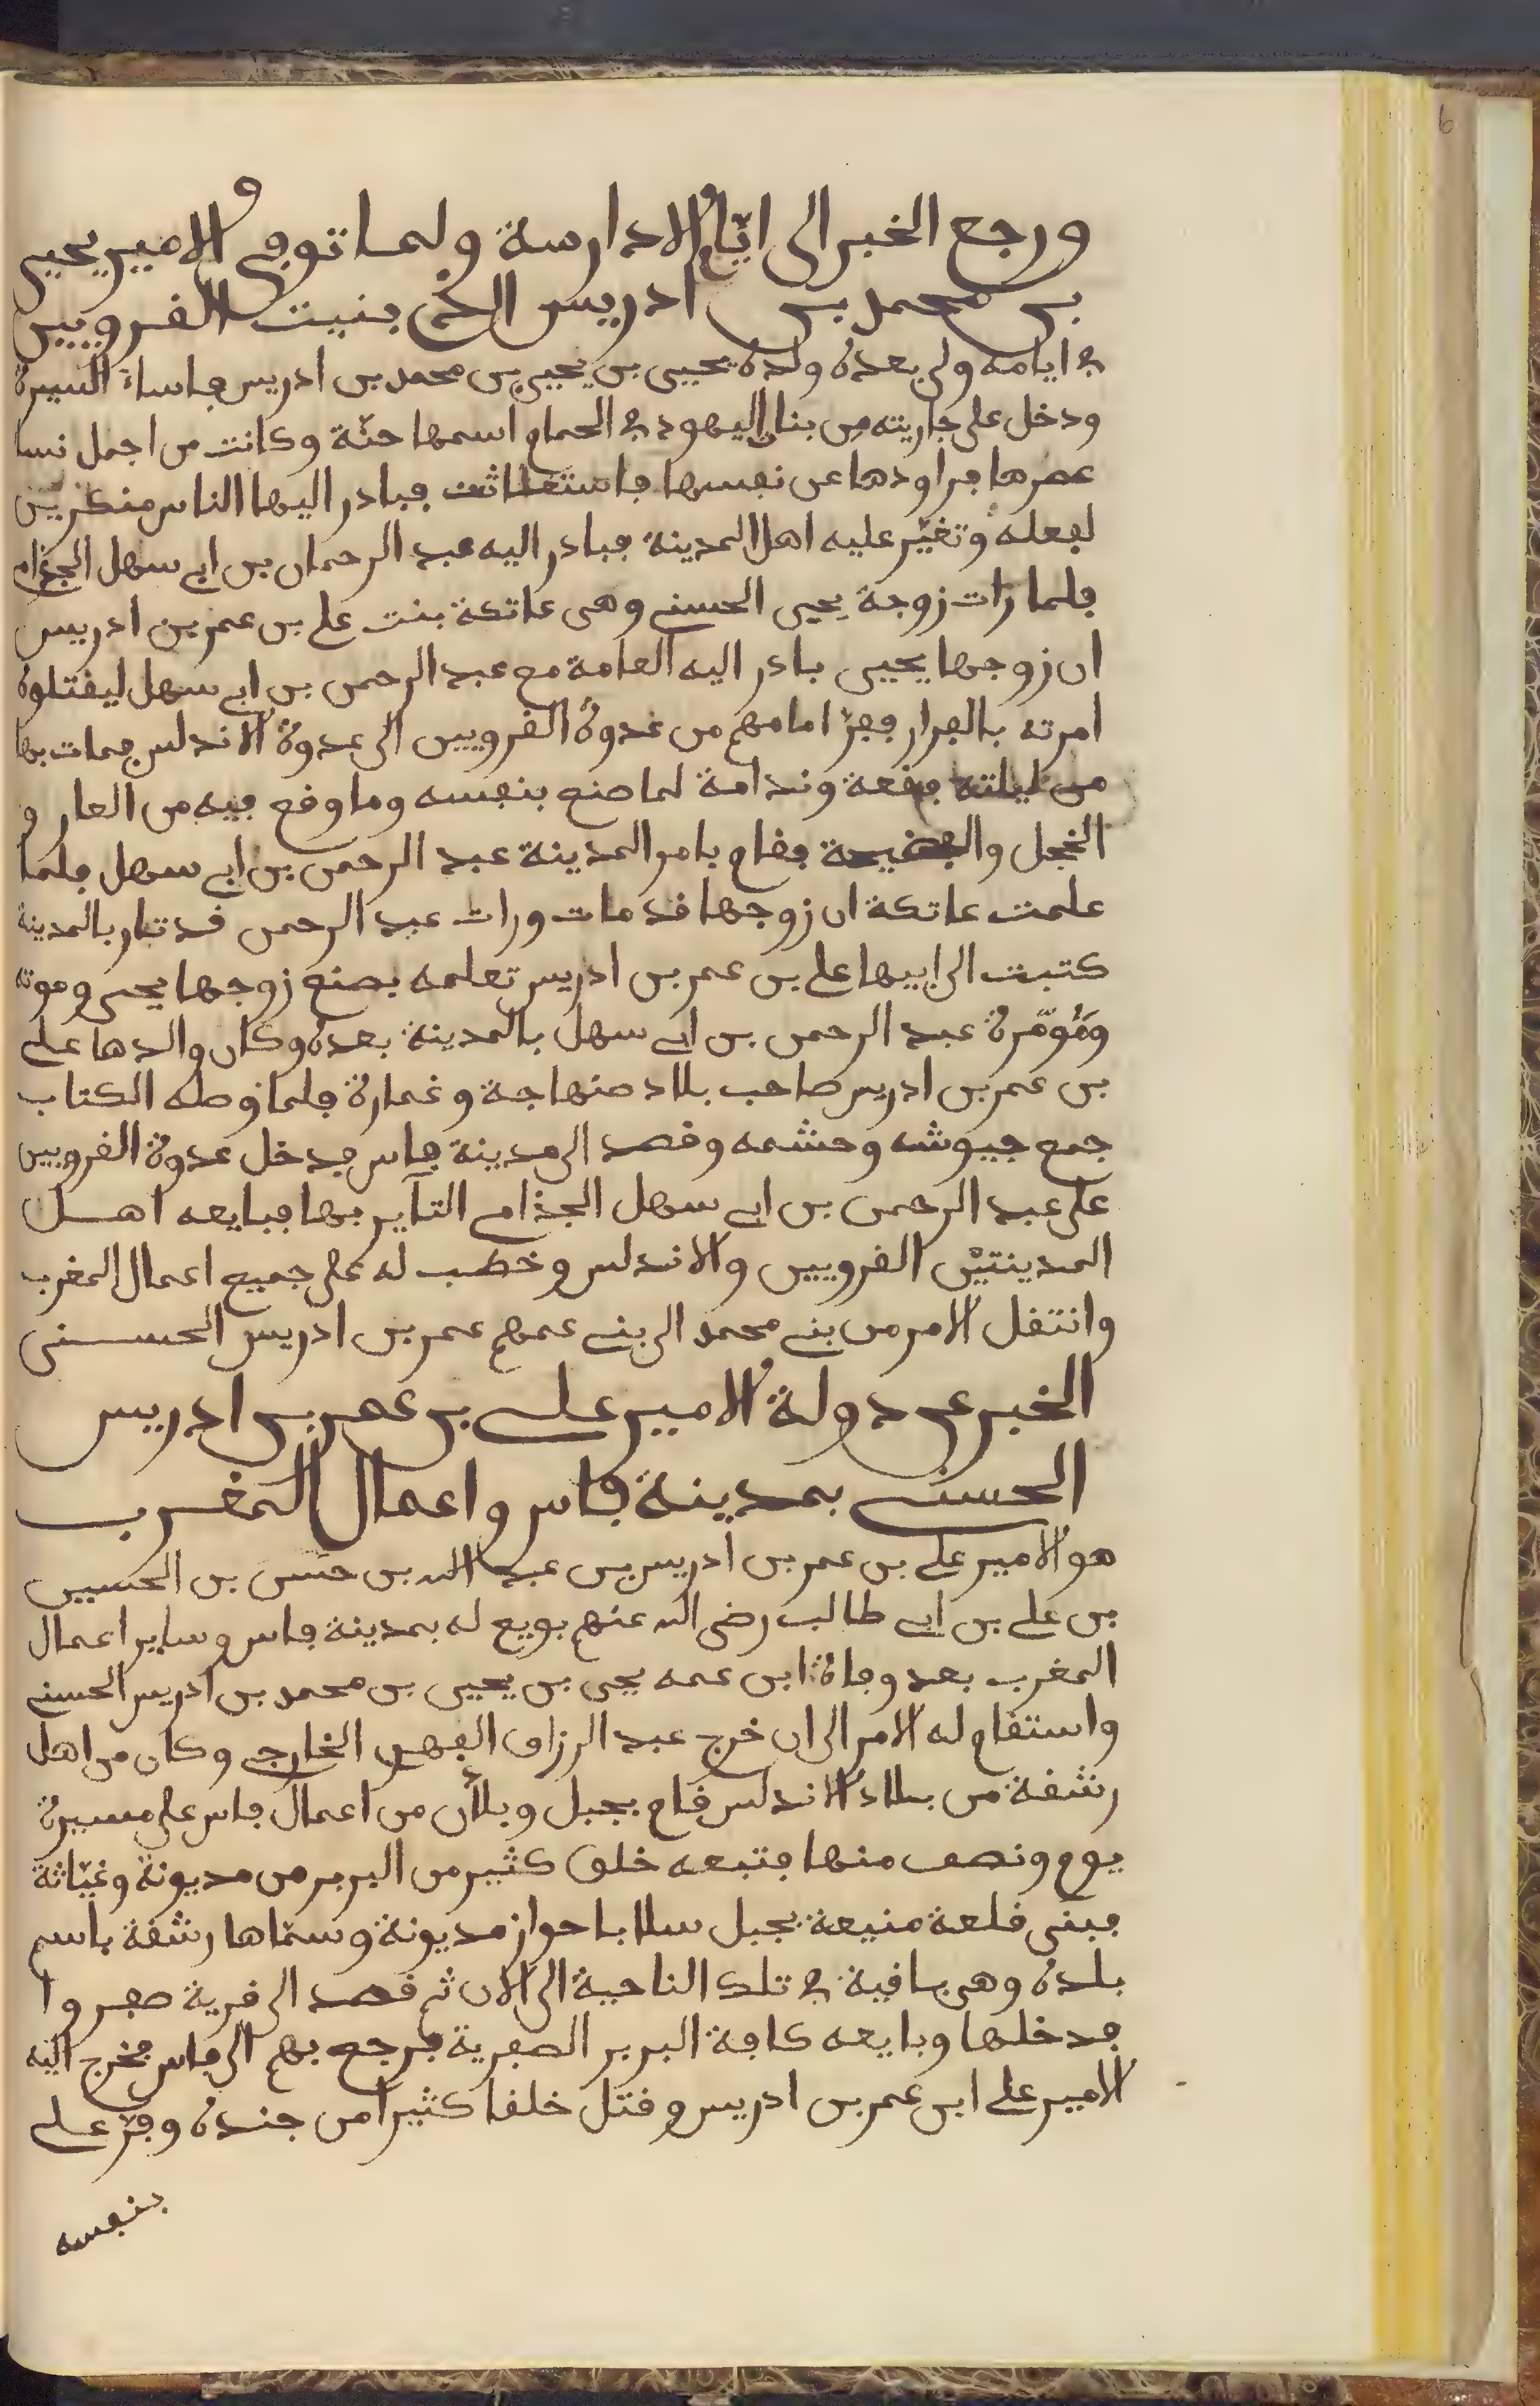 ورجع الخبر الى ايّام الادارسة ولما توفي الامير يحيى
بن محمد بن ادريس الذي بنيت القرويين
في ايامه ولي بعده ولده يحيى بن يحيى بن محمد بن ادريس فاساء السيرة
ودخل على جاريته من بنات اليهود في الحمام اسمها حنّة وكانت من اجمل نسا
عصرها فراودها عن نفسها فاستغاثت فبادر اليها الناس منكرين
لفعله وتغيّر عليه اهل المدينة فبادر اليه عبد الرحمان بن ابي سهل الجذام
فلما رات زوجة يحيى الحسني وهي عاتكة بنت علي بن عمر بن ادريس
ان زوجها يحيى بادر اليه العامة مع عبد الرحمن بن ابي سهل ليقتلوه
امرته بالفرار ففرّ امامهم من عدوة القرويين الى عدوة الاندلس فمات بها
من ليلته فقعة وندامة لما صنع بنفسه وما وقع فيه من العار و
الخجل والفضيحة فقام بامر المدينة عبد الرحمن بن ابي سهل فلما
علمت عاتكة ان زوجها قد مات ورات عبد الرحمن قد ثار بالمدينة
كتبت الى ابيها علي بن عمر بن ادريس تعلمه بصنع زوجها يحيى وموته
وتؤمّره عبد الرحمن بن ابي سهل بالمدينة بعده وكان والدها علي
بن عمر بن ادريس صاحب بلاد صنهاجة وغمارة فلما وصله الكتاب
جمع جيوشه وحشمه وقصد الى مدينة فاس فدخل عدوة القرويين
على عبد الرحمن بن ابي سهل الجذامي الثاير بها فبايعه اهل
المدينتين القرويين والاندلس وخطب له على جميع اعمال المغرب
وانتقل الامر من بني محمد الى بني عمهم عمر بن ادريس الحسني
الخبر عن دولة الامير علي بن عمر بن ادريس
الحسني بمدينة فاس واعمال المغرب
هو الامير علي بن عمر بن ادريس بن عبد الله بن حسن بن الحسين
بن علي بن ابي طالب رضي الله عنهم بويع له بمدينة فاس وساير اعمال
المغرب بعد وفاة ابن عمه يحيى بن يحيى بن محمد بن ادريس الحسني
واستقام له الامر الى ان خرج عبد الرزاق الفهري الخارجي وكان من اهل
رشقة من بلاد الاندلس قام بجبل وبلان من اعمال فاس على مسيرة
يوم ونصف منها فتبعه خلق كثير من البربر من مديونة وغيّاثة
فبنى قلعة منيعة بجبل سلا باحواز مديونة وسمّاها رشقة باسم
بلده وهي باقية في تلك الناحية الى الان ثم قصد الى قرية صفروا
فدخلها وبايعه كافة البربر الصفرية فرجع بهم الى فاس فخرج اليه
الامير علي ابن عمر بن ادريس وقتل خلقا كثيرا من جنده وفرّ علي
بنفسه
6